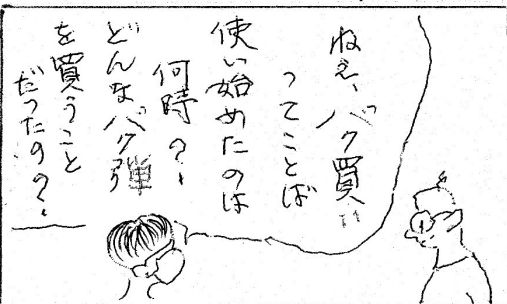 ねぇ、バク買い
ってことば
使い始めたのは
何時？
どんなバクダン
を買うこと
だったの？